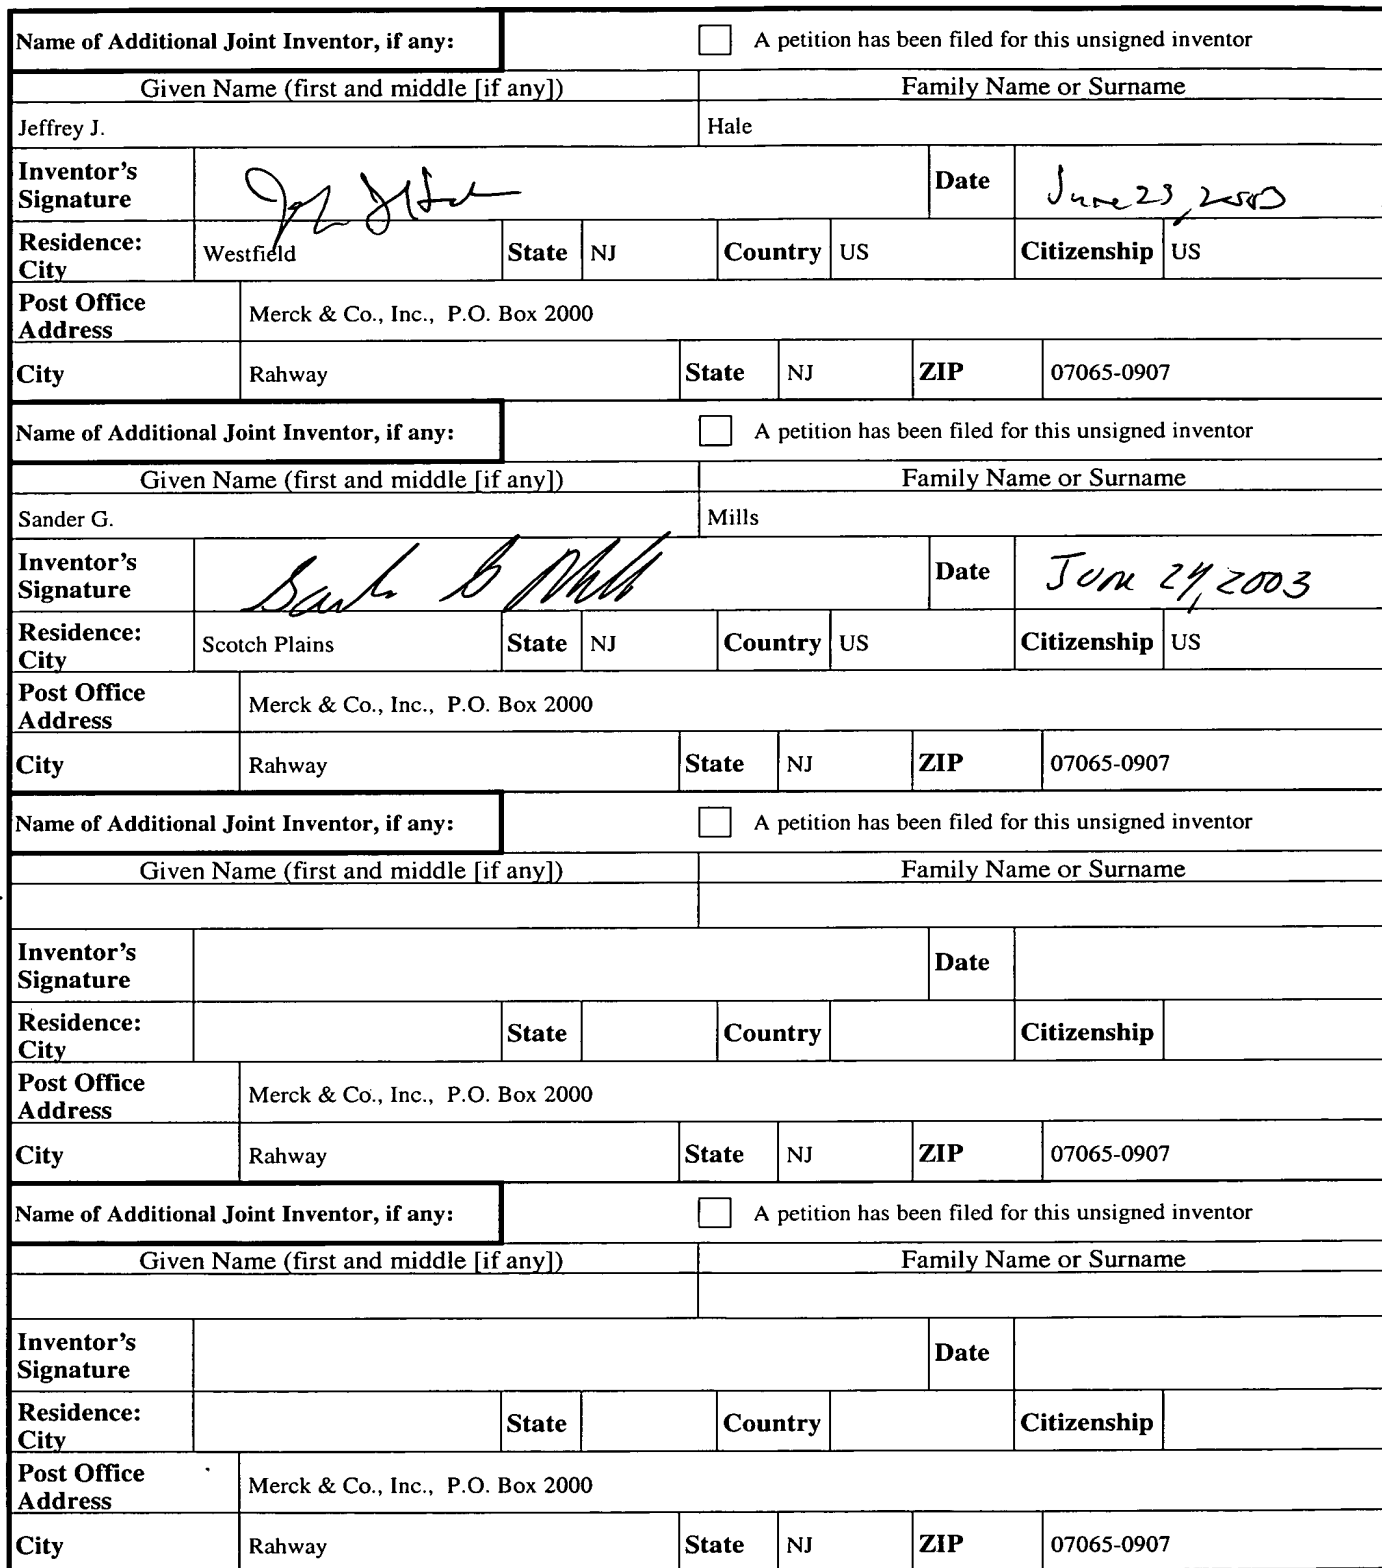 Name of Additional Joint Inventor, if any: A petition has been filed for this unsigned inventor
Given Name (first and middle [if any]) Family Name or Surname
Jeffrey J. Hale
Inventor's Signature Date June 23, 2003
Residence: City Westfield State NJ Country US Citizenship US
Post Office Address Merck & Co., Inc., P.O. Box 2000
City Rahway State NJ ZIP 07065-0907
Name of Additional Joint Inventor, if any: A petition has been filed for this unsigned inventor
Given Name (first and middle [if any]) Family Name or Surname
Sander G. Mills
Inventor's Signature Date June 24, 2003
Residence: City Scotch Plains State NJ Country US Citizenship US
Post Office Address Merck & Co., Inc., P.O. Box 2000
City Rahway State NJ ZIP 07065-0907
Name of Additional Joint Inventor, if any: A petition has been filed for this unsigned inventor
Given Name (first and middle [if any]) Family Name or Surname
Inventor's Signature Date
Residence: City State Country Citizenship
Post Office Address Merck & Co., Inc., P.O. Box 2000
City Rahway State NJ ZIP 07065-0907
Name of Additional Joint Inventor, if any: A petition has been filed for this unsigned inventor
Given Name (first and middle [if any]) Family Name or Surname
Inventor's Signature Date
Residence: City State Country Citizenship
Post Office Address Merck & Co., Inc., P.O. Box 2000
City Rahway State NJ ZIP 07065-0907